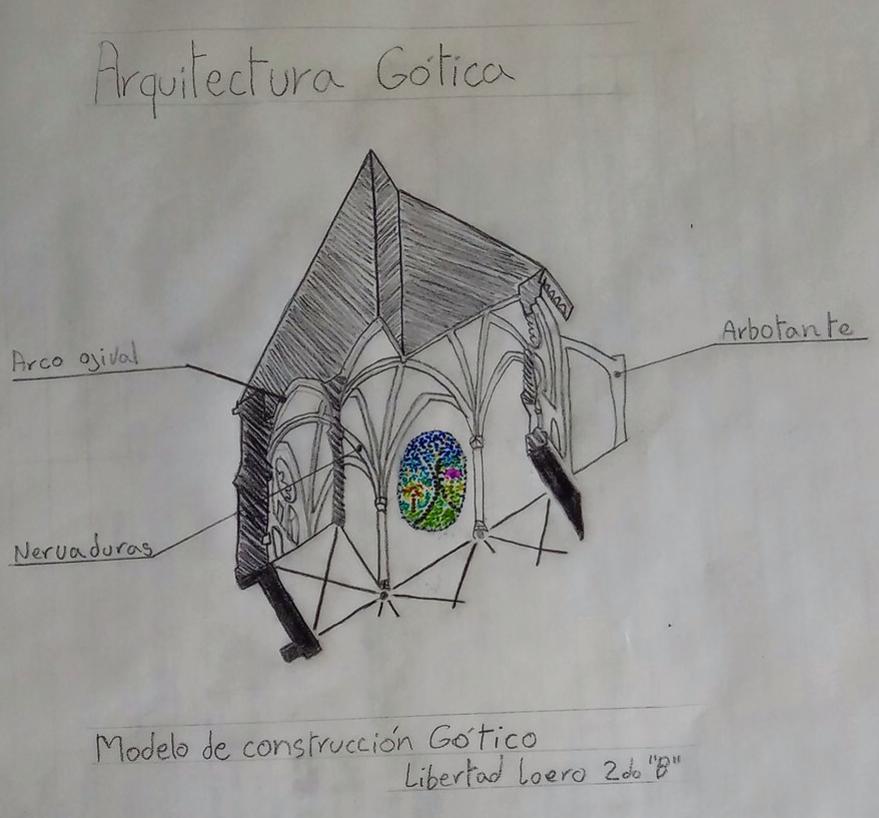 Arquitectura Gótica
Arco ojival
Arbotante
Nervaduras
Modelo de construcción Gótico
Libertad Loero 2do "B"